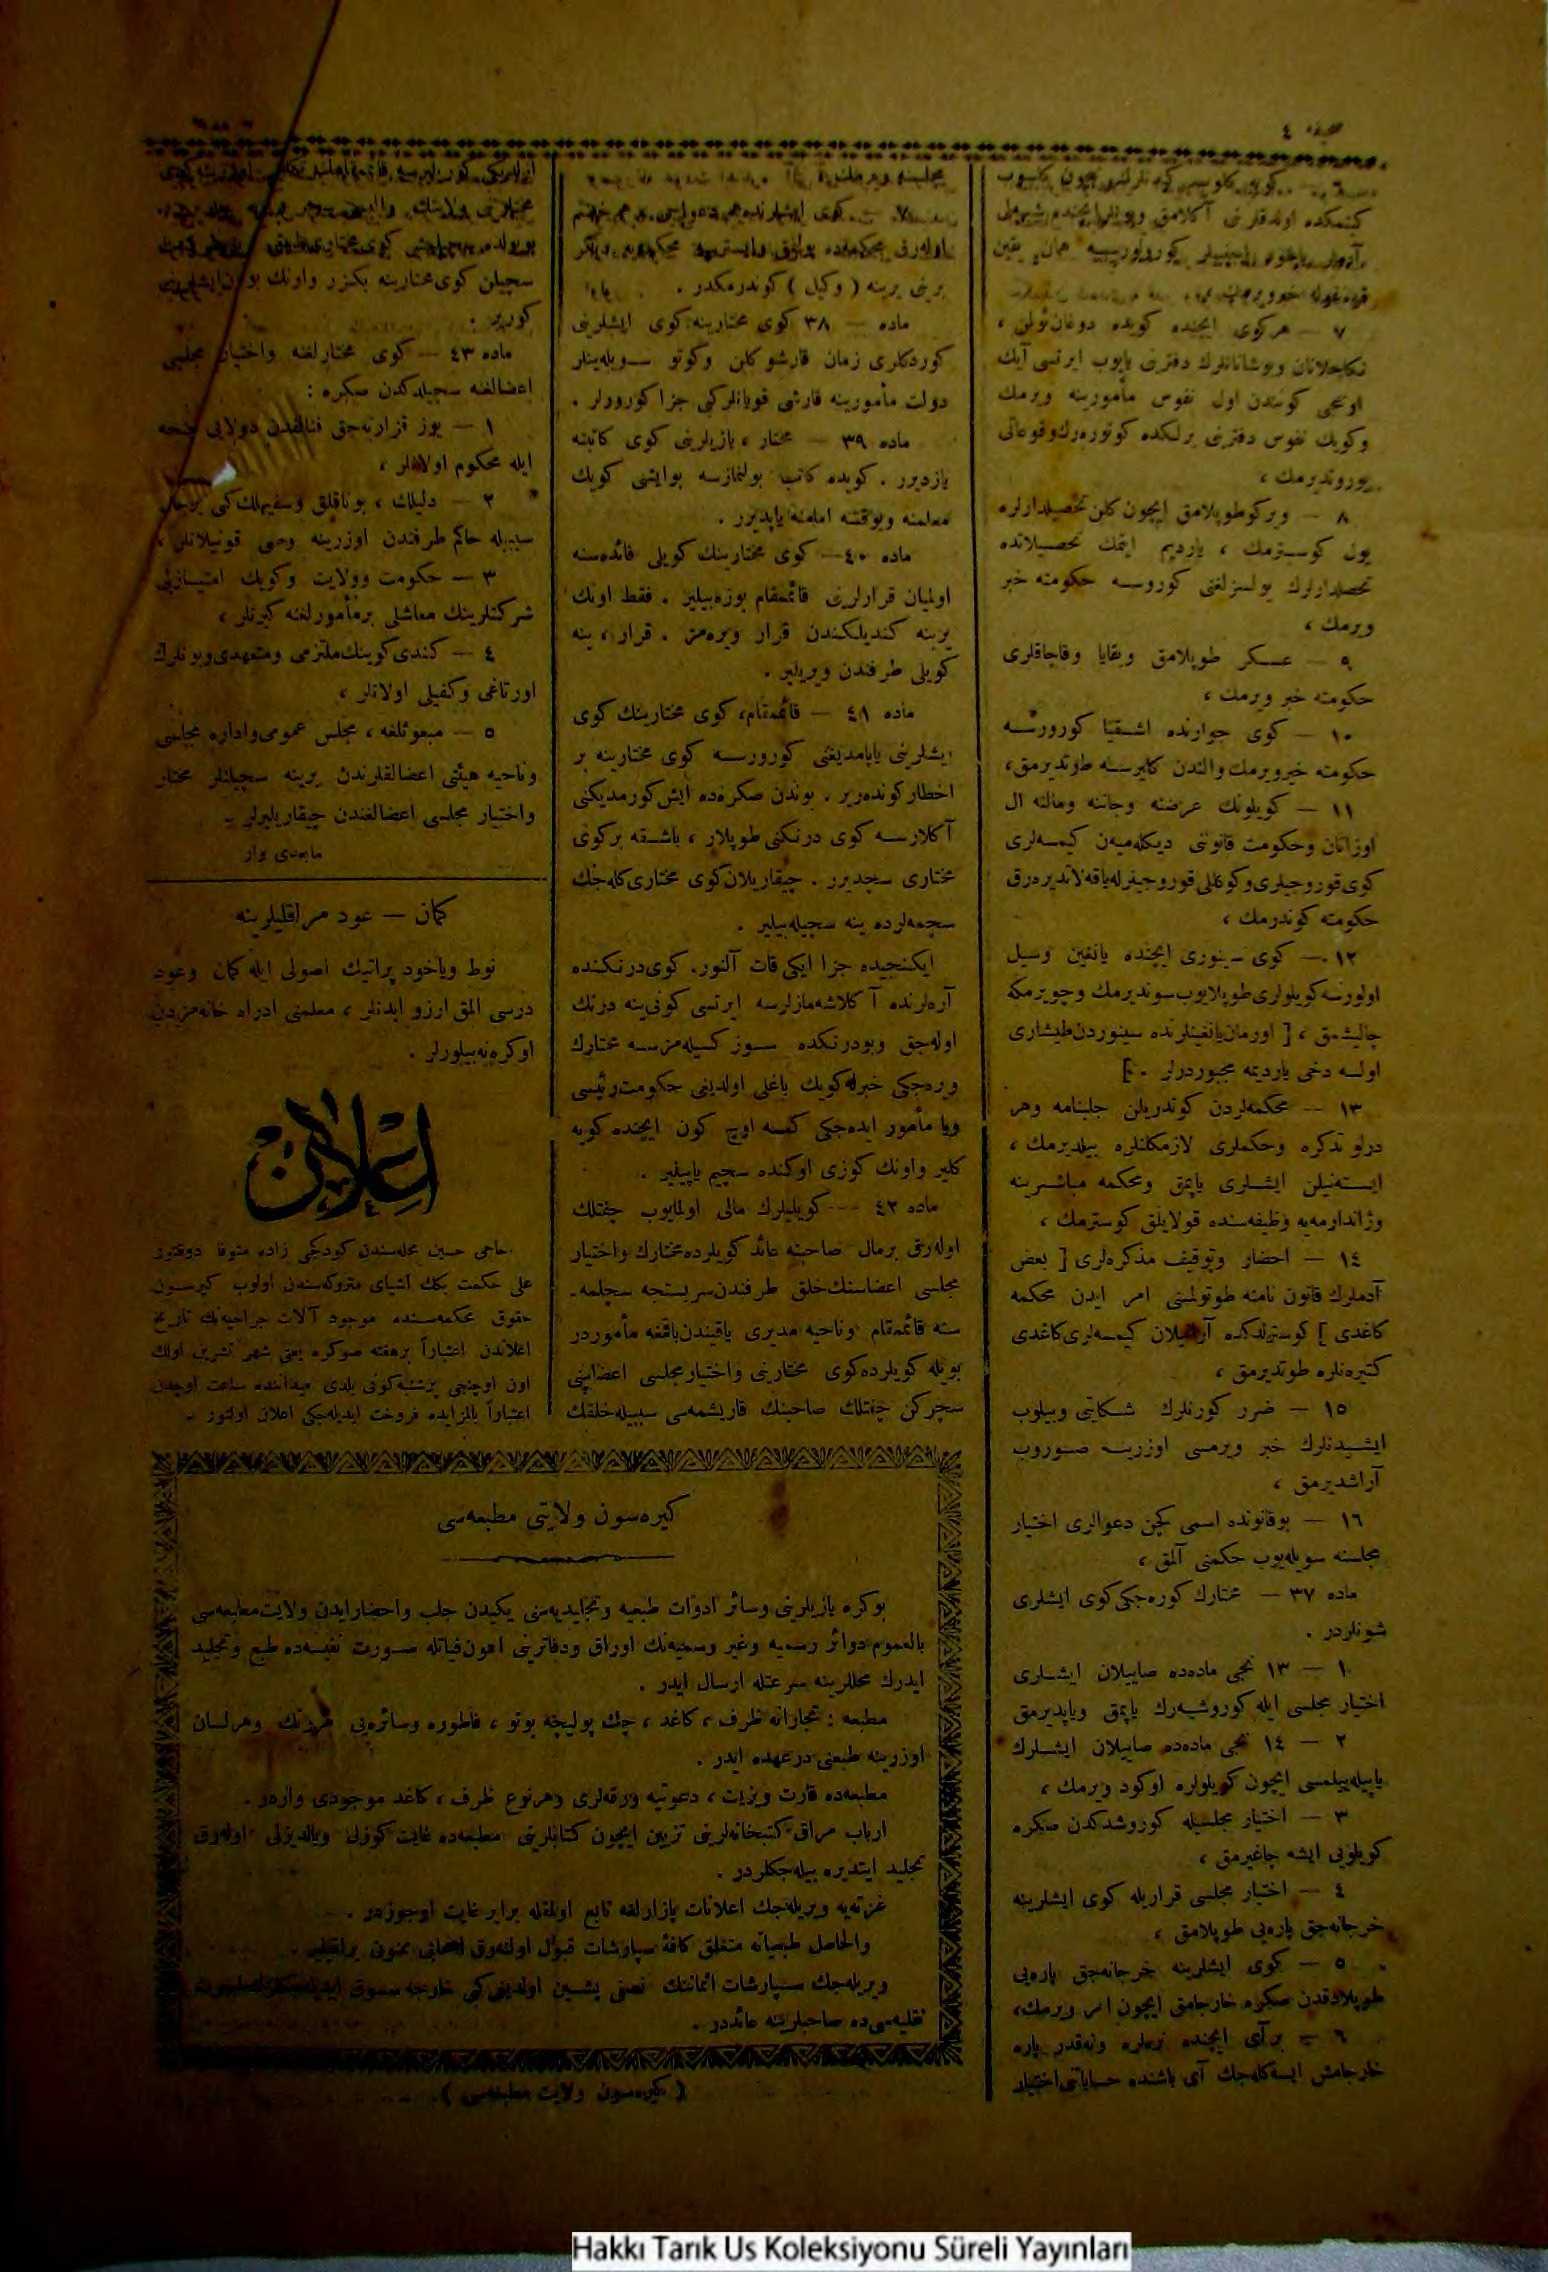 صحیفه ٤
٦ — کویه کلوب کیدنلرك نیچون کلوب
کیتمکده اولدقلرینی آکلامق وبونلر ایچنده شبهه‌لی
آدملر یاخود اجنبیلر کورولورسه همان یقین
قره‌غوله خبر ویرمك ،
٧ — هرکوی ایچنده کویده دوغان ئولن ،
نکاحلانان وبوشانانلرك دفترینی یاپوب ایرتسی آیك
اوننجی کوننه‌دن اول نفوس مأمورینه ویرمك
وکویك نفوس دفترینی برلکده کوتوره‌رك وقوعاتی
یوروتدیرمك ،
٨ — ویرکو طوپلامق ایچون کلن تحصیلدارلره
یول کوسترمك ، یاردیم ایتمك تحصیلاتده
تحصیلدارلرك یولسزلغنی کوررسه حکومته خبر
ویرمك ،
٩ — عسکر طوپلامق وبقایا وقاچاقلری
حکومته خبر ویرمك ،
١٠ — کوی جوارنده اشقیا کورورسه
حکومته خبرویرمك والندن کلیرسه طوتدیرمق،
١١ — کویلونك عرضنه وجاننه ومالنه ال
اوزاتان وحکومت قانوننی دیکله‌میه‌ن کیمسه‌لری
کوی قوروجیلری وکوکللی قوروجیلرله یاقه‌لاتدیره‌رق
حکومته کوندرمك ،
١٢ — کوی سینوری ایچنده یانغین وسیل
اولورسه کویلولری طوپلایوب سوندیرمك وچویرمکه
چالیشمق ، [ اورمان یانغینلرنده سینوردن طیشاری
اولسه دخی یاردیمه مجبوردرلر . ]
١٣ — محکمه‌لردن کوندریلن جلبنامه وهر
درلو تذکره وحکملری لازمکلنلره بیلدیرمك ،
ایسته‌نیلن ایشلری یاپمق ومحکمه مباشرینه
وژاندارمه‌یه وظیفه‌سنده قولایلق کوسترمك ،
١٤ — احضار وتوقیف مذکره‌لری [ بعض
آدملرك قانون نامنه طوتولمسنی امر ایدن محکمه
کاغدی ] کوسترلدکده آرانیلان کیمسه‌لری کاغدی
کتیره‌نلره طوتدیرمق ،
١٥ — ضرر کورنلرك شکایتی وبیلوب
ایشیدنلرك خبر ویرمسی اوزرینه صوروب
آراشدیرمق ،
١٦ — بوقانونده اسمی کچن دعوالری اختیار
مجلسنه سویله‌یوب حکمنی آلمق ،
ماده ٣٧ — مختارك کوره‌جکی کوی ایشلری
شونلردر .
١ — ١٣ نجی ماده‌ده صاییلان ایشلری
اختیار مجلسی ایله کوروشه‌رك یاپمق ویاپدیرمق
٢ — ١٤ نجی ماده‌ده صاییلان ایشلرك
یاپیله‌بیلمسی ایچون کویلولره اوکود ویرمك ،
٣ — اختیار مجلسیله کوروشدکدن صکره
کویلویی ایشه چاغیرمق ،
٤ — اختیار مجلسی قراریله کوی ایشلرینه
خرجانه‌جق پاره‌یی طوپلامق ،
٥ — کوی ایشلرینه خرجانه‌جق پاره‌یی
طوپلادقدن صکره خارجامق ایچون امر ویرمك،
٦ — برآی ایچنده نره‌لره ونه‌قدر پاره
خارجامش ایسه کله‌جك آی باشنده حساباتی اختیار
مجلسنه ویرمك
٧ — کوی ایشلرنده هم دعواجی وهم خصم
اوله‌رق محکمه‌ده بولنمق وایسترسه محکمه‌یه دیکر
برینی یرینه ( وکیل ) کوندرمکدر .
ماده — ٣٨ کوی مختارینه کوی ایشلرینی
کوردکلری زمان قارشو کلن وکوتو سویله‌ینلر
دولت مأمورینه قارشی قویانلرکبی جزا کورورلر .
ماده ٣٩ — مختار ، یازیلرینی کوی کاتبنه
یازدیرر . کویده کاتب بولنمازسه بوایشی کویك
معلمنه ویوقسه امامنه یاپدیرر .
ماده ٤٠ — کوی مختارینك کویلی فائده‌سنه
اولمیان قرارلرینی قائممقام بوزه‌بیلیر . فقط اونك
یرینه کندیلکندن قرار ویره‌مز . قرار ، ینه
کویلی طرفندن ویریلیر .
ماده ٤١ — قائممقام، کوی مختارینك کوی
ایشلرینی یاپامدیغنی کورورسه کوی مختارینه بر
اخطار کونده‌ریر . بوندن صکره‌ده ایش کورمدیکنی
آکلارسه کوی درنکنی طوپلار ، باشقه برکوی
مختاری سچدیرر . چیقاریلان کوی مختاری کله‌جك
سچمه‌لرده ینه سچیله‌بیلیر .
ایکنجیده جزا ایکی قات آلنور. کوی درنکنده
آره‌لرنده آکلاشه‌مازلرسه ایرتسی کونی ینه درنك
اوله‌جق وبودرنکده سوز کسیله‌مزسه مختارك
ویره‌جکی خبرله کویك باغلی اولدیغی حکومت رئیسی
ویا مأمور ایده‌جکی کمسه اوچ کون ایچنده کویه
کلیر واونك کوزی اوکنده سچیم یاپیلیر .
ماده ٤٢ — کویلیلرك مالی اولمایوب چفتلك
اوله‌رق برمال صاحبنه عائد کویلرده مختارك واختیار
مجلسی اعضاسنك خلق طرفندن سربستجه سچلمه‌ـ
سنه قائممقام وناحیه مدیری یاقیندن باقمغه مأموردر
بویله کویلرده کوی مختارینی واختیار مجلسی اعضاسنی
سچرکن چفتلك صاحبنك قاریشمه‌سی سببیله خلقك
سچیلن کوی مختارینه بکزر واونك بوتون ایشلرینی
کورر .
ماده ٤٣ — کوی مختارلغنه واختیار مجلسی
اعضالغنه سچیلدکدن صکره :
١ — یوز قزارته‌جق فنالقدن دولایی جنحه
ایله محکوم اولانلر ،
٢ — دلیلك ، بوناقلق وسفیهلك کبی برحال
سببیله حاکم طرفندن اوزرینه وصی قونیلانلر ،
٣ — حکومت وولایت وکویك امتیازلی
شرکتلرینك معاشلی برمأمورلغنه کیرنلر ،
٤ — کندی کوینك ملتزمی ومتعهدی وبونلرك
اورتاغی وکفیلی اولانلر ،
٥ — مبعوثلغه ، مجلس عمومی واداره مجلسی
وناحیه هیئتی اعضالقلرندن برینه سچیلنلر مختار
واختیار مجلسی اعضالغندن چیقاریلیرلر .
مابعدی وار
کمان — عود مراقلیلرینه
نوط ویاخود پراتیك اصولی ایله کمان وعود
درسی المق ارزو ایدنلر ، معلمنی اداره خانه‌مزدن
اوکره‌نه‌بیلورلر .
اعلان
حاجی حسین محله‌سندن کودکجی زاده متوفا دوقتور
علی حکمت بكك اشیای متروکه‌سندن اولوب کیرسون
حقوق محکمه‌سنده موجود آلات جراحیه‌نك تاریخ
اعلاندن اعتباراً برهفته صوکره یعنی شهر تشرین اولك
اون اوچنجی پنجشنبه کونی بلدی میداننده ساعت اوچدن
اعتباراً بالمزایده فروخت ایدیله‌جکی اعلان اولنور .
کیره‌سون ولایتی مطبعه‌سی
بوکره یازیلرینی وسائر ادوات طبعیه وتجلیدیه‌سنی یکیدن جلب واحضار ایدن ولایت مطبعه‌سی
بالعموم دوائر رسمیه وغیر رسمیه‌نك اوراق ودفاترینی اهون فیاتله صورت نفیسه‌ده طبع وتجلید
ایدرك محللرینه سرعتله ارسال ایدر .
مطبعه : تجارانه ظرف ، کاغد ، چك پولیچه بونو ، فاطوره وسائره‌یی هررنك وهرلسان
اوزرینه طبعنی درعهده ایدر .
مطبعه‌ده قارت ویزیت ، دعوتیه ورقه‌لری وهرنوع ظرف ، کاغد موجودی واردر .
ارباب مراق کتبخانه‌لرینی تزیین ایچون کتابلرینی مطبعه‌ده غایت کوزل ویالدیزلی اوله‌رق
تجلید ایتدیره بیله‌جکلردر .
غزته‌یه ویریله‌جك اعلانات پازارلغه تابع اولمقله برابر غایت اوجوزدر .
والحاصل طبعیاته متعلق کافهٔ سپارشات قبول اولنه‌رق اصحابی ممنون براقیلیر .
ویریله‌جك سپارشات اثماننك نصفی پشین اولدیغی کبی خارجه سوق
نقلیه‌سی‌ده صاحبلرینه عائددر .
( کیره‌سون ولایت مطبعه‌سی )
Hakkı Tarık Us Koleksiyonu Süreli Yayınları